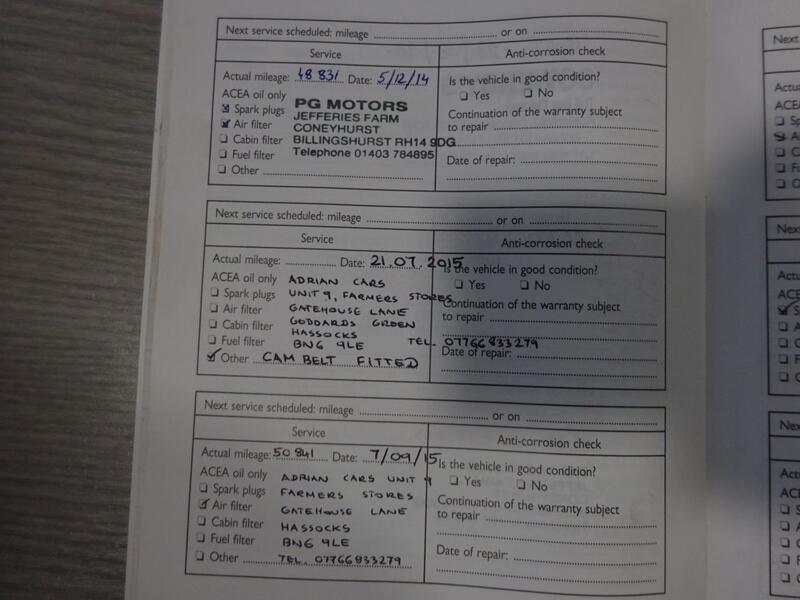 Next service scheduled: mileage ............ or on ............
Service Anti-corrosion check
Actual mileage: 48 831 Date: 5/12/14 Is the vehicle in good condition?
ACEA oil only Yes No
Spark plugs PG MOTORS
Air filter JEFFERIES FARM Continuation of the warranty subject
CONEYHURST to repair
Cabin filter BILLINGSHURST RH14 9DG
Fuel filter Telephone 01403 784895 Date of repair:
Other
Next service scheduled: mileage ............ or on ............
Service Anti-corrosion check
Actual mileage: ............ Date: 21.07.2015 Is the vehicle in good condition?
ACEA oil only ADRIAN CARS Yes No
Spark plugs UNIT 9, FARMERS STORES Continuation of the warranty subject
Air filter GATEHOUSE LANE to repair
Cabin filter GODDARDS GREEN
HASSOCKS
Fuel filter BN6 9LE TEL. 07766833279
Other CAM BELT FITTED Date of repair:
Next service scheduled: mileage ............ or on ............
Service Anti-corrosion check
Actual mileage: 50 841 Date: 7/09/15 Is the vehicle in good condition?
ACEA oil only ADRIAN CARS UNIT 9 Yes No
Spark plugs FARMERS STORES Continuation of the warranty subject
Air filter GATEHOUSE LANE to repair
Cabin filter HASSOCKS
Fuel filter BN6 9LE Date of repair:
Other TEL. 07766833279
Next
Actu
ACEA
Next
ACE
Nex
Actu
ACE